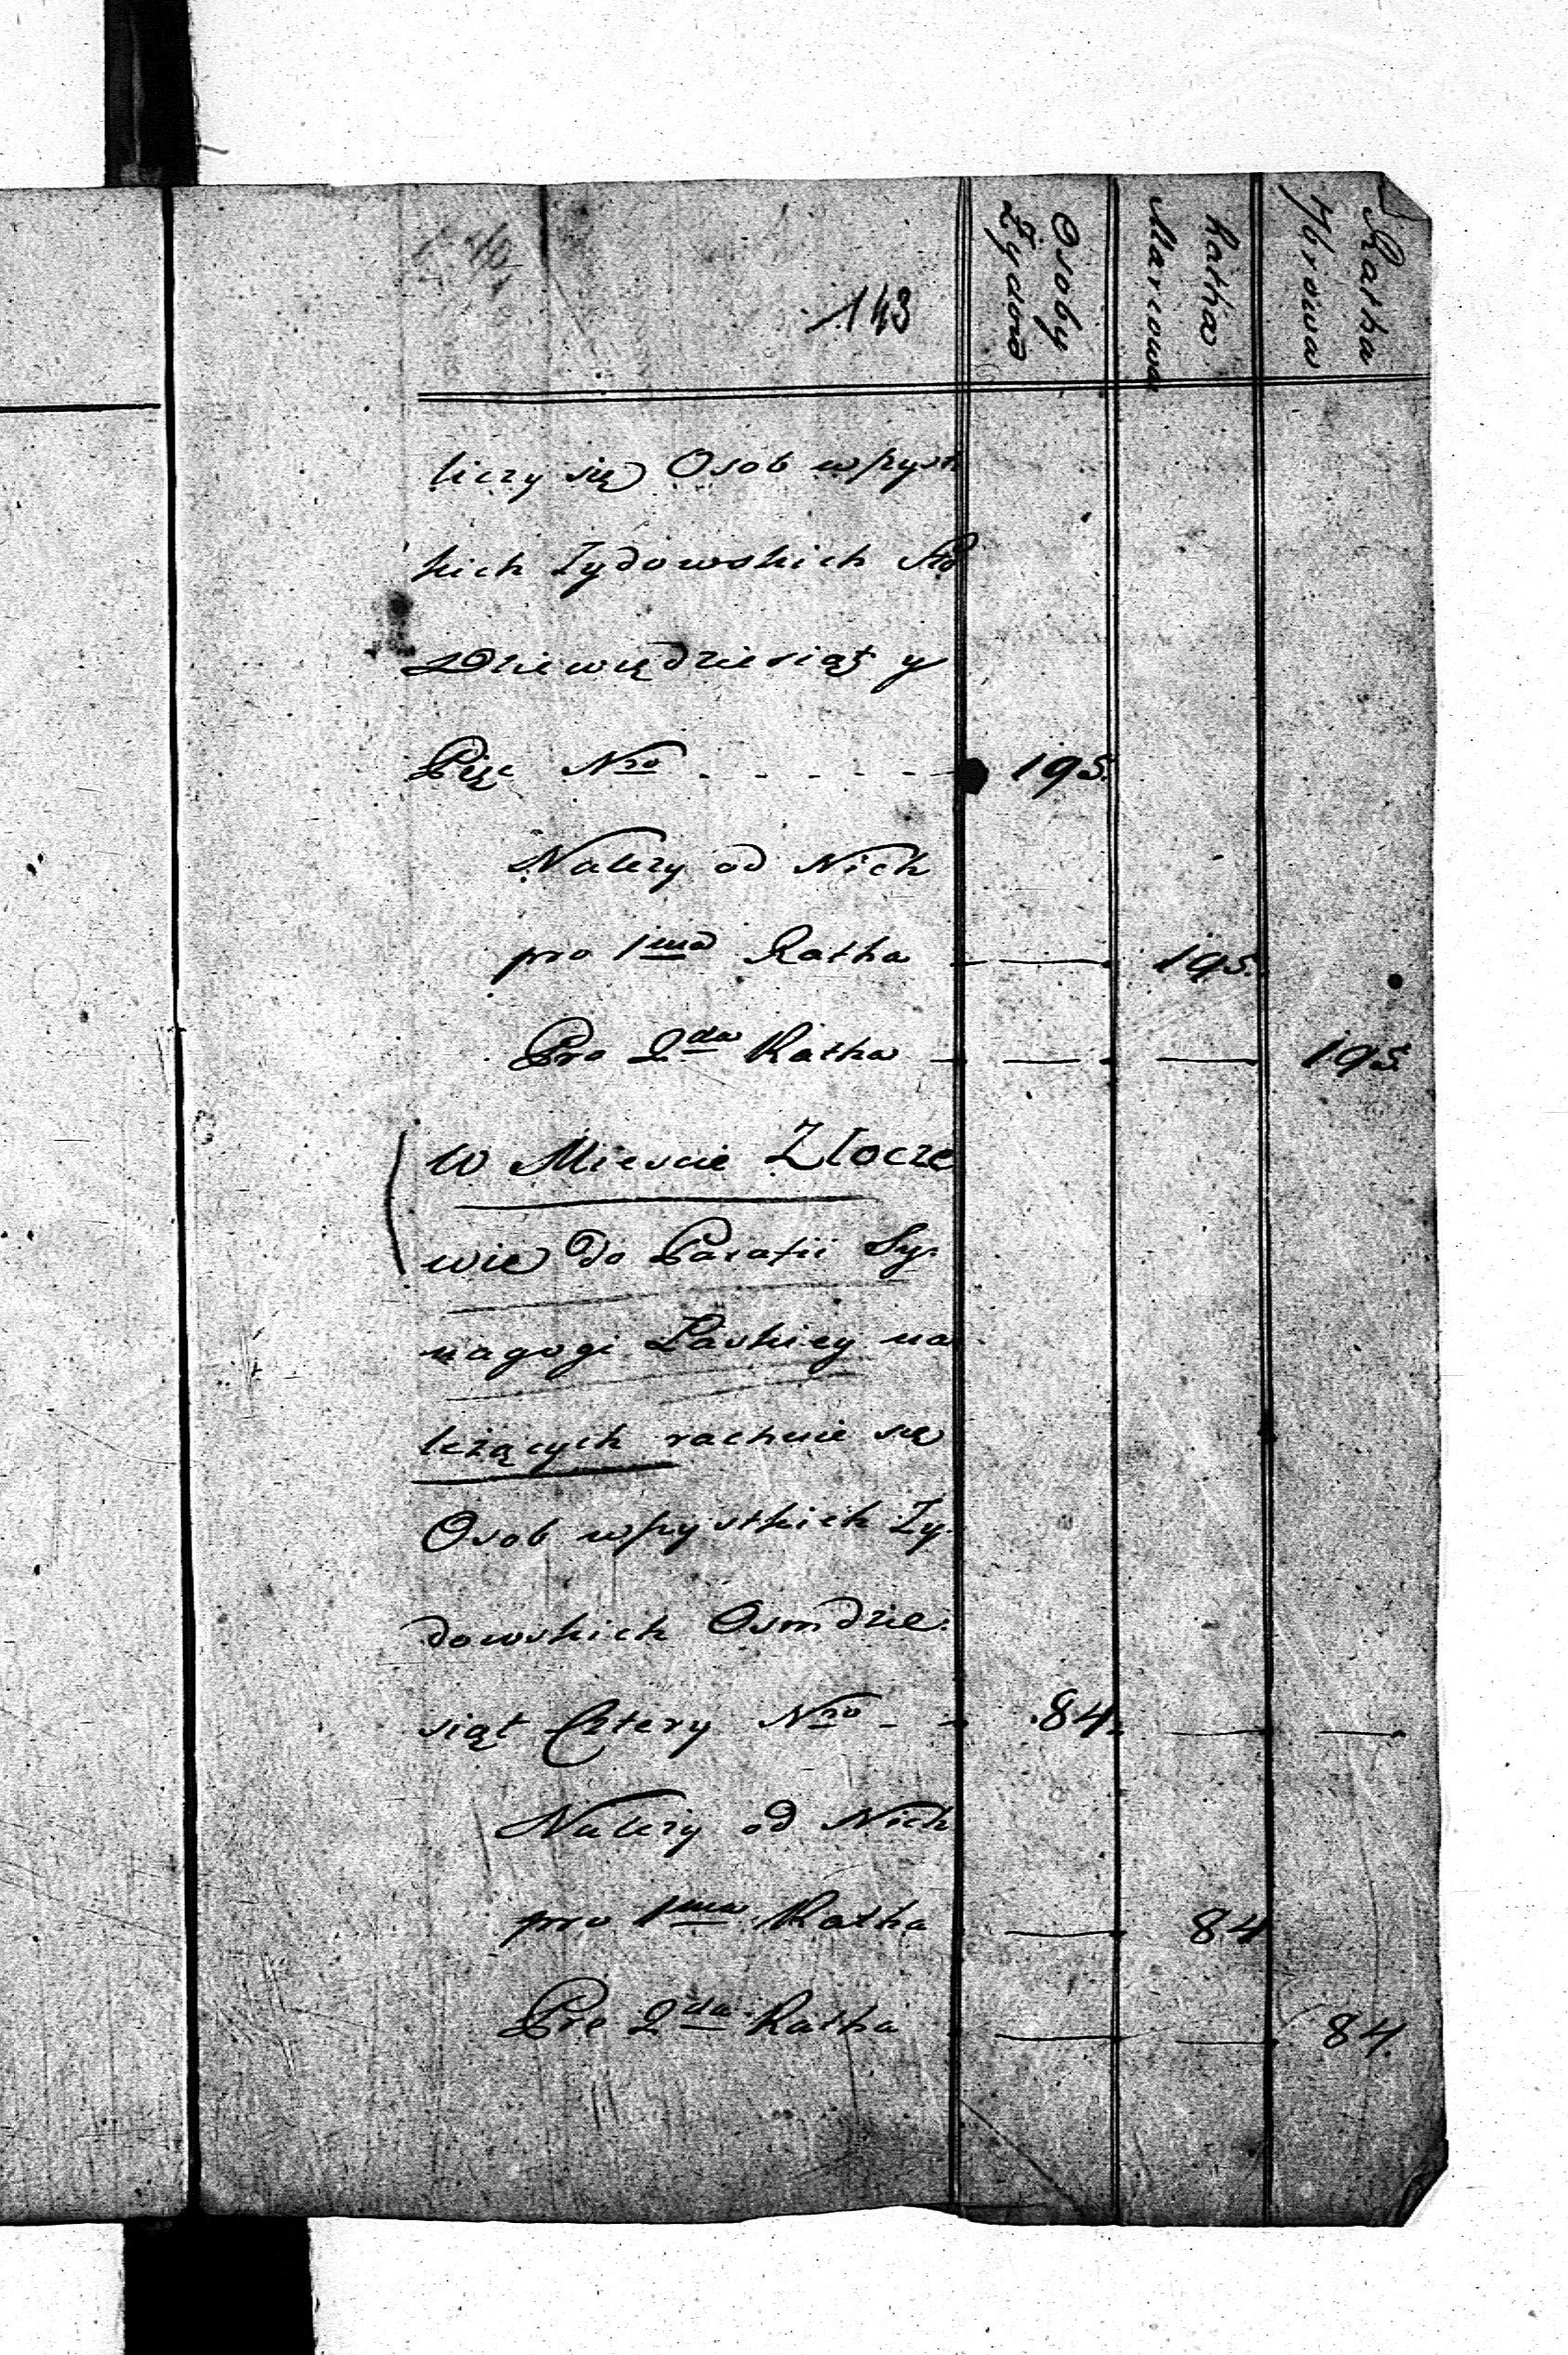 143
Osoby Żydow
Ratha Marcowa
Ratha 7browa
liczy się Osob wszyst
kich Zydowskich Sto
Dziewiędziesiąt y
Pięc Nro - - - - - - 195.
Nalezy od Nich
pro 1ma Ratha — — 195.
Pro 2da Ratha — — — 195
W Miescie Złocze
wie do Parafii Sy.
nagogi Łaskiey na
leżących rachuie się
Osob wszystkich Zy.
dowskich Osmdzie.
siąt Cztery Nro - - 84. — —
Nalezy od Nich
pro 1ma Ratha — 84
Pro 2da Ratha — — 84.